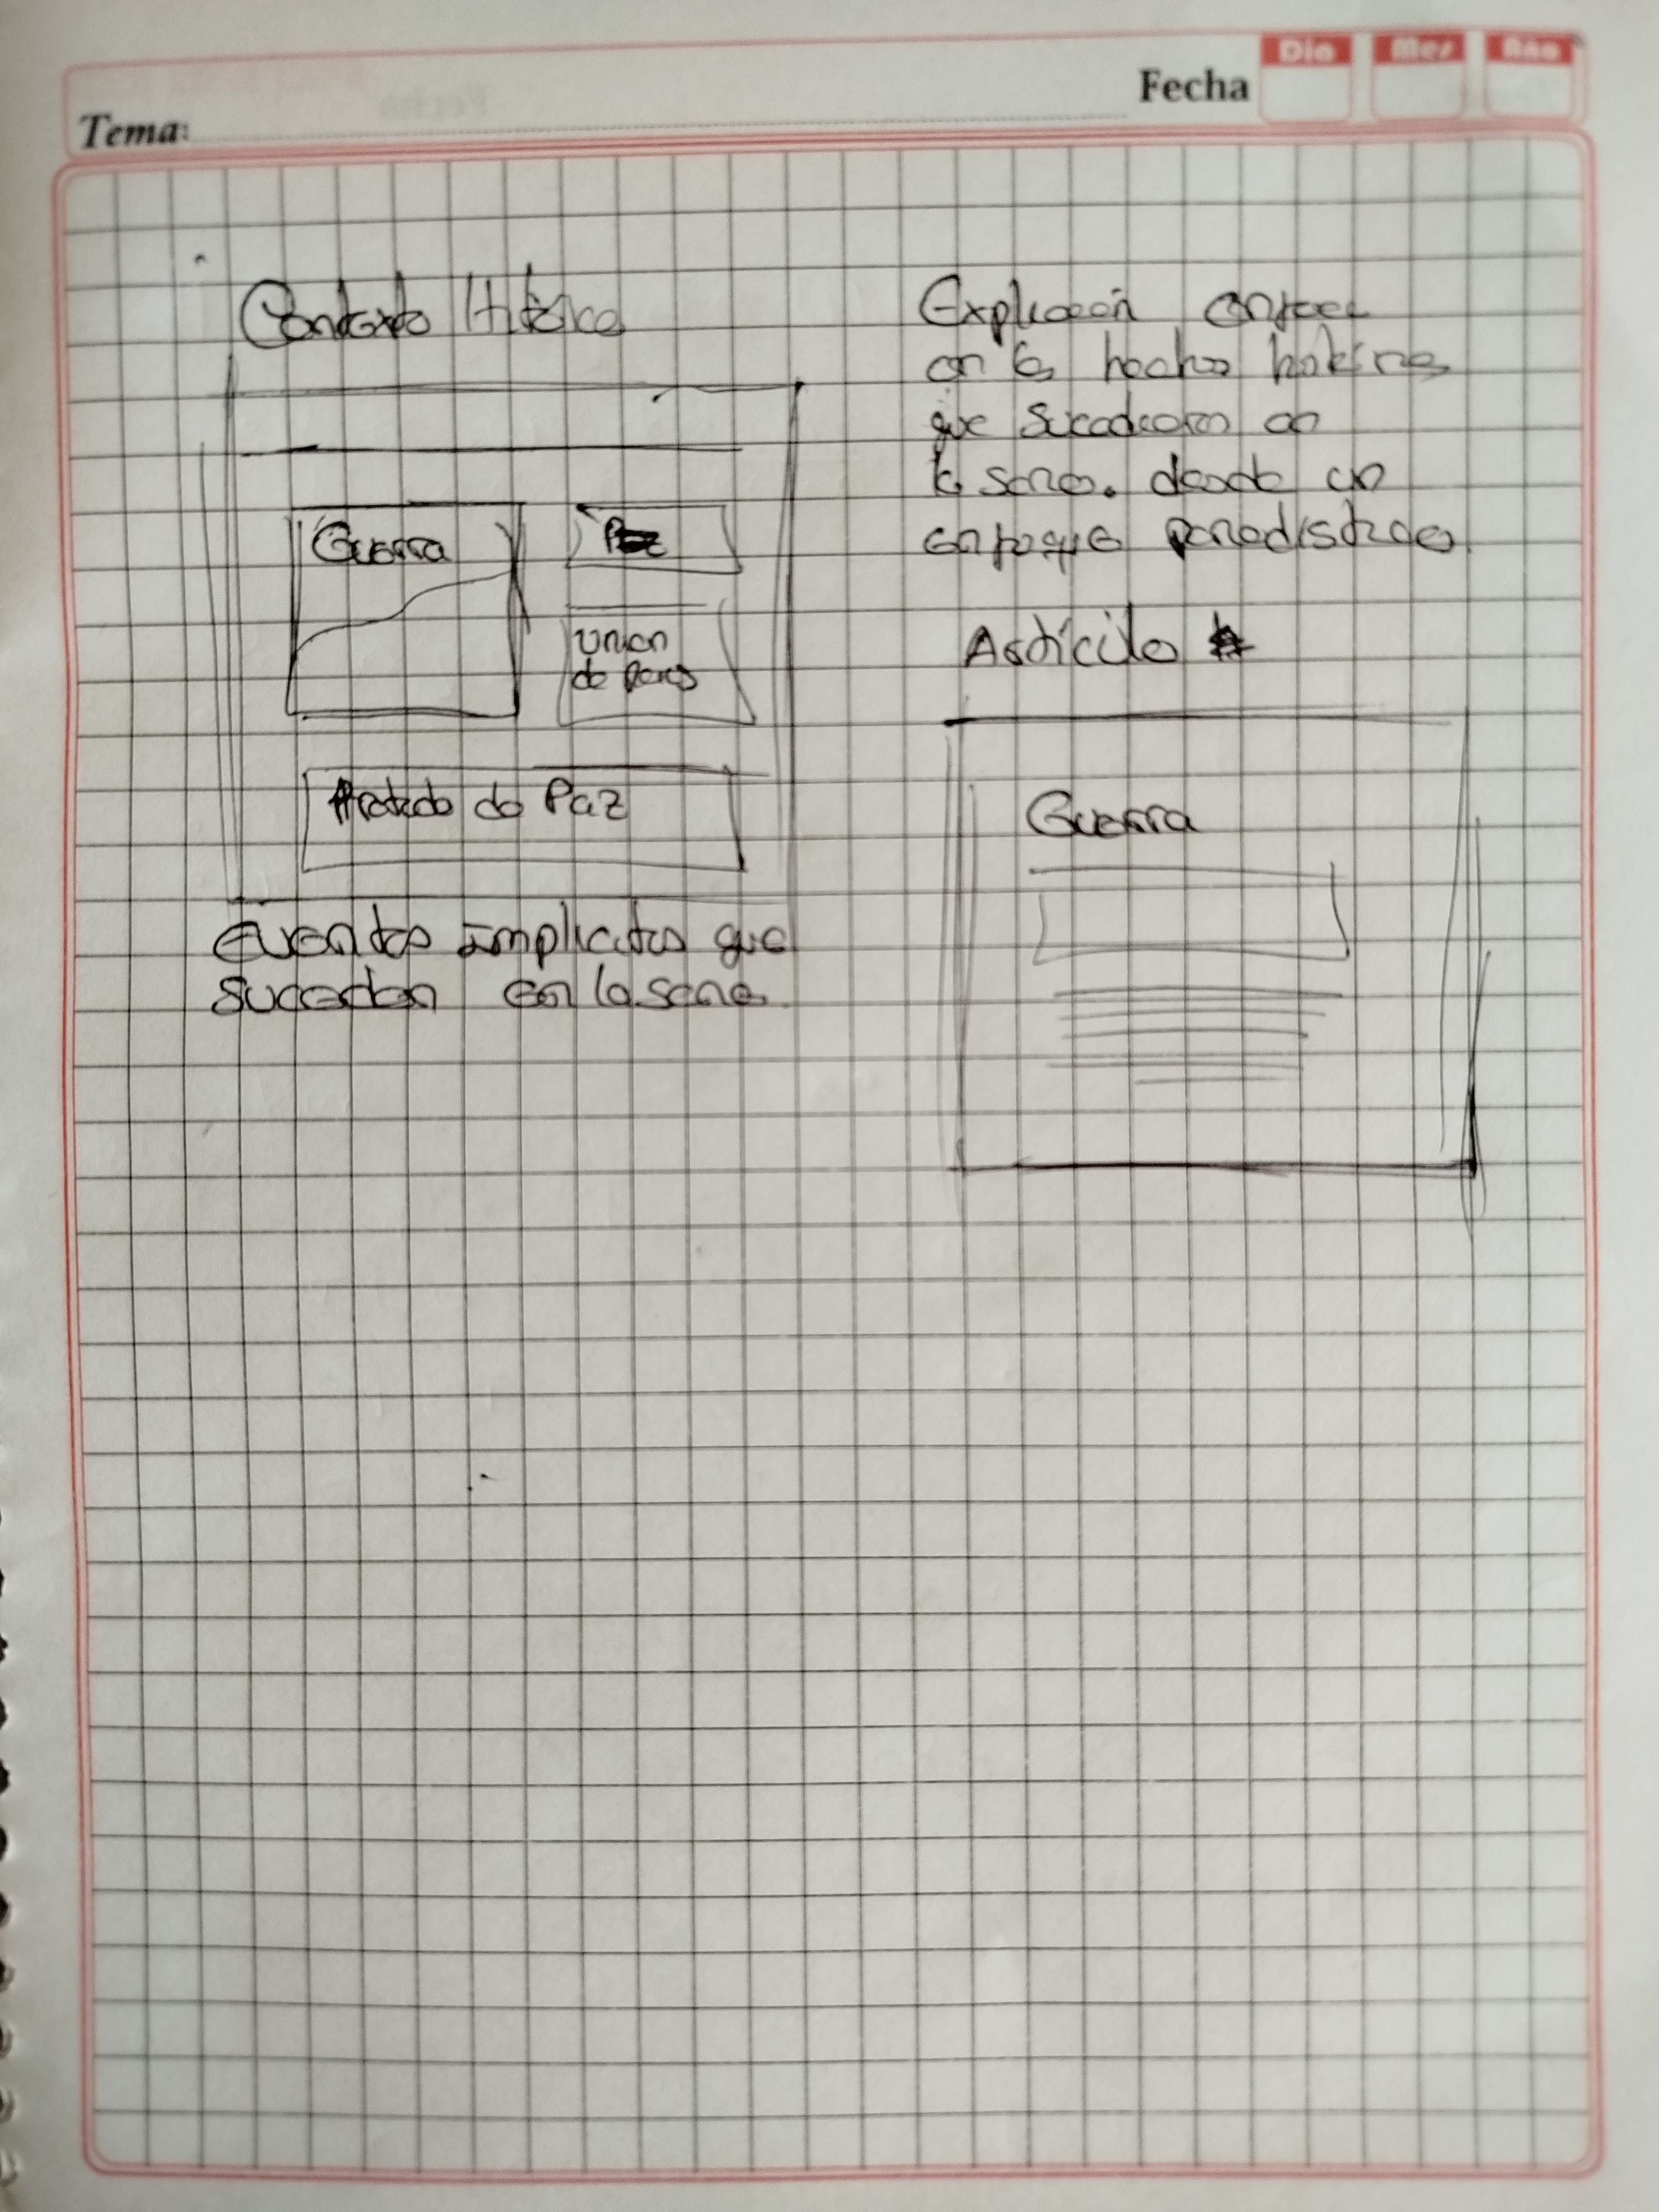 Tema:
Fecha
Dia Mes Año
Contexto Histórico
Guerra
Paz
Union
de
Tratado de Paz
Eventos Implicitos que
Suceden en la serie
Explicación
en los hechos
que Sucedieron en
la serie. desde un
enfoque periodistico
Artículo
Guerra